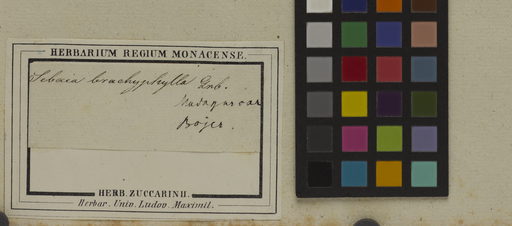 HERBARIUM REGIUM MONACENSE.
Sebaea brachyphylla Grb.
Madagascar
Bojer.
HERB. ZUCCARINII.
Herbar. Univ. Ludov. Maximil.